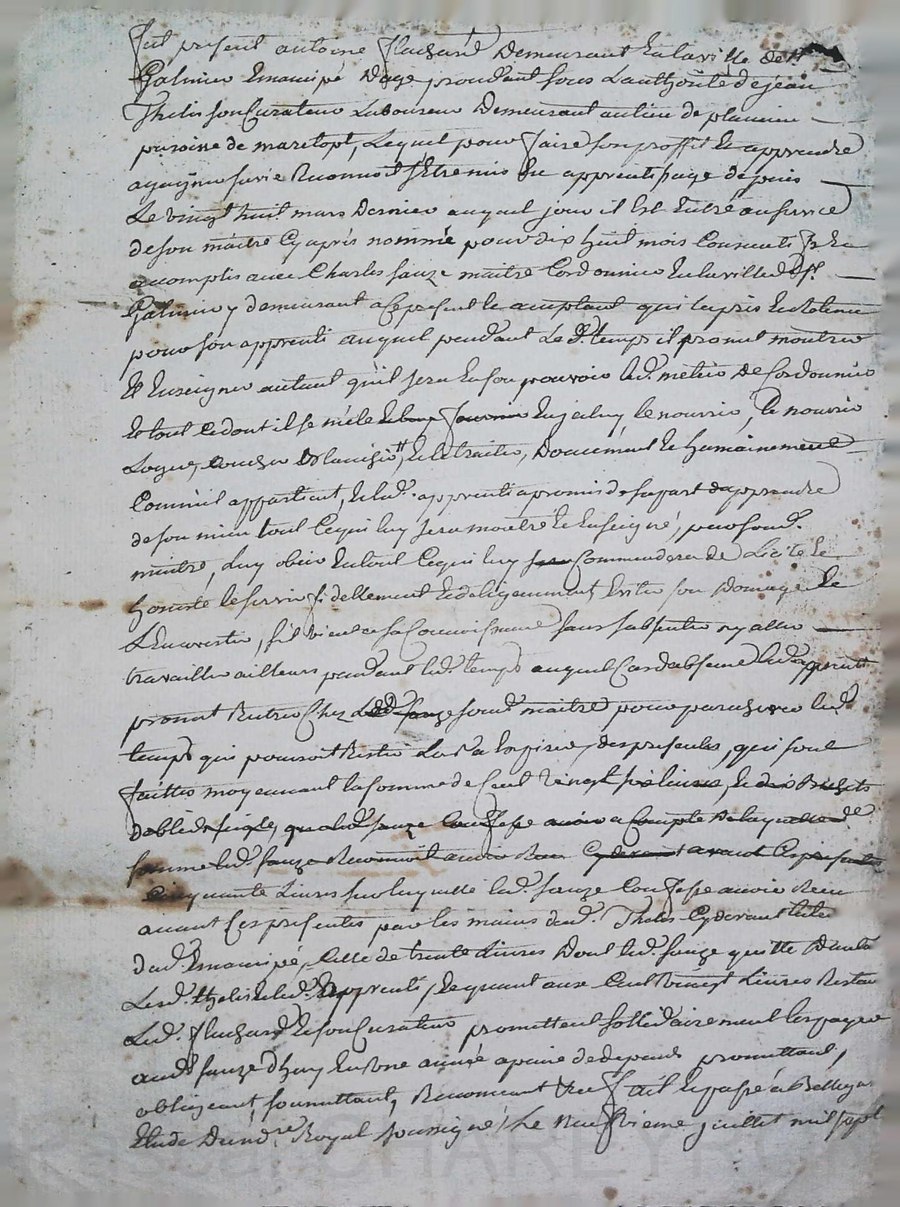 fut présent antoine flachard Demeurant En la ville de St
Galmier Emancipé Dage procedant sous Lauthorité de jean
Thelis son Curateur Laboureur Demeurant au lieu de
paroisse de Lequel pour faire son proffit Et apprendre
a gagner sa vie Reconnoit sEtre mis En apprentissage depuis
Le vingt huit mars Dernier auquel jour il Est Entré au service
de son maitre Cy après nommé pour dix huit mois Consecutifs Et
acomplis avec Charles fauze maitre Cordonnier En la ville de St
Galmier y demeurant a Ce present Et aceptant qui la pris Et Retenu
pour son apprenti auquel pendant Le d. temps il promet montrer
Et Enseigner autant quil sera En son pouvoir led. metier de Cordonnier
Et tout Ce dont il se mele En jceluy, le nourrir, le nourrir
Loger, Coucher Et blanchir, Et le traiter, Doucement Et humainement
Comme il appartient, Et led. apprenti a promis de sa part dapprendre
de son mieux tout Ce qui luy sera montré Et Enseigné, par sond.
maitre, Luy obeir En tout Ce qui luy Commandera de Licite Et
honnete le servir fidellement Et diligemment Eviter son Domage Et
LEn avertir, sil vient a sa Connoissance sans sabsenter ny aller
travailler ailleurs pendant led. temps auquel Cas dabsence led. apprenti
promet Rentrer Chez sond. maitre pour parachever led.
temps qui pourroit Rester des presentes, qui sont
faittes moyennant la somme de Cent vingt livres, Et dix bichets
de bled seigle, quoi led. fauze Confesse avoir a Compte De laquelle
somme led. fauze Reconnoit avoir Reçu Cy devant avant Ces presentes
Cinquante Livres sur laquelle led. fauze Confesse avoir Reçu
avant Ces presentes par les mains dud. Thelis Cy devant
dud. Emancipé, Celle de trente Livres Dont led. fauze quitte
Lesd. thelis Et led. apprenti, Et quant aux Cent vingt Livres Restan
Led. flachard Et son Curateur promettent sollidairement les payer
aud. fauze dhuy En une année a peine de depends promettant,
obligeant, soumettant, Renoncant fait Et passé à Bellega
Etude Du nore Royal soussigné, Le neufvieme juillet mil sept